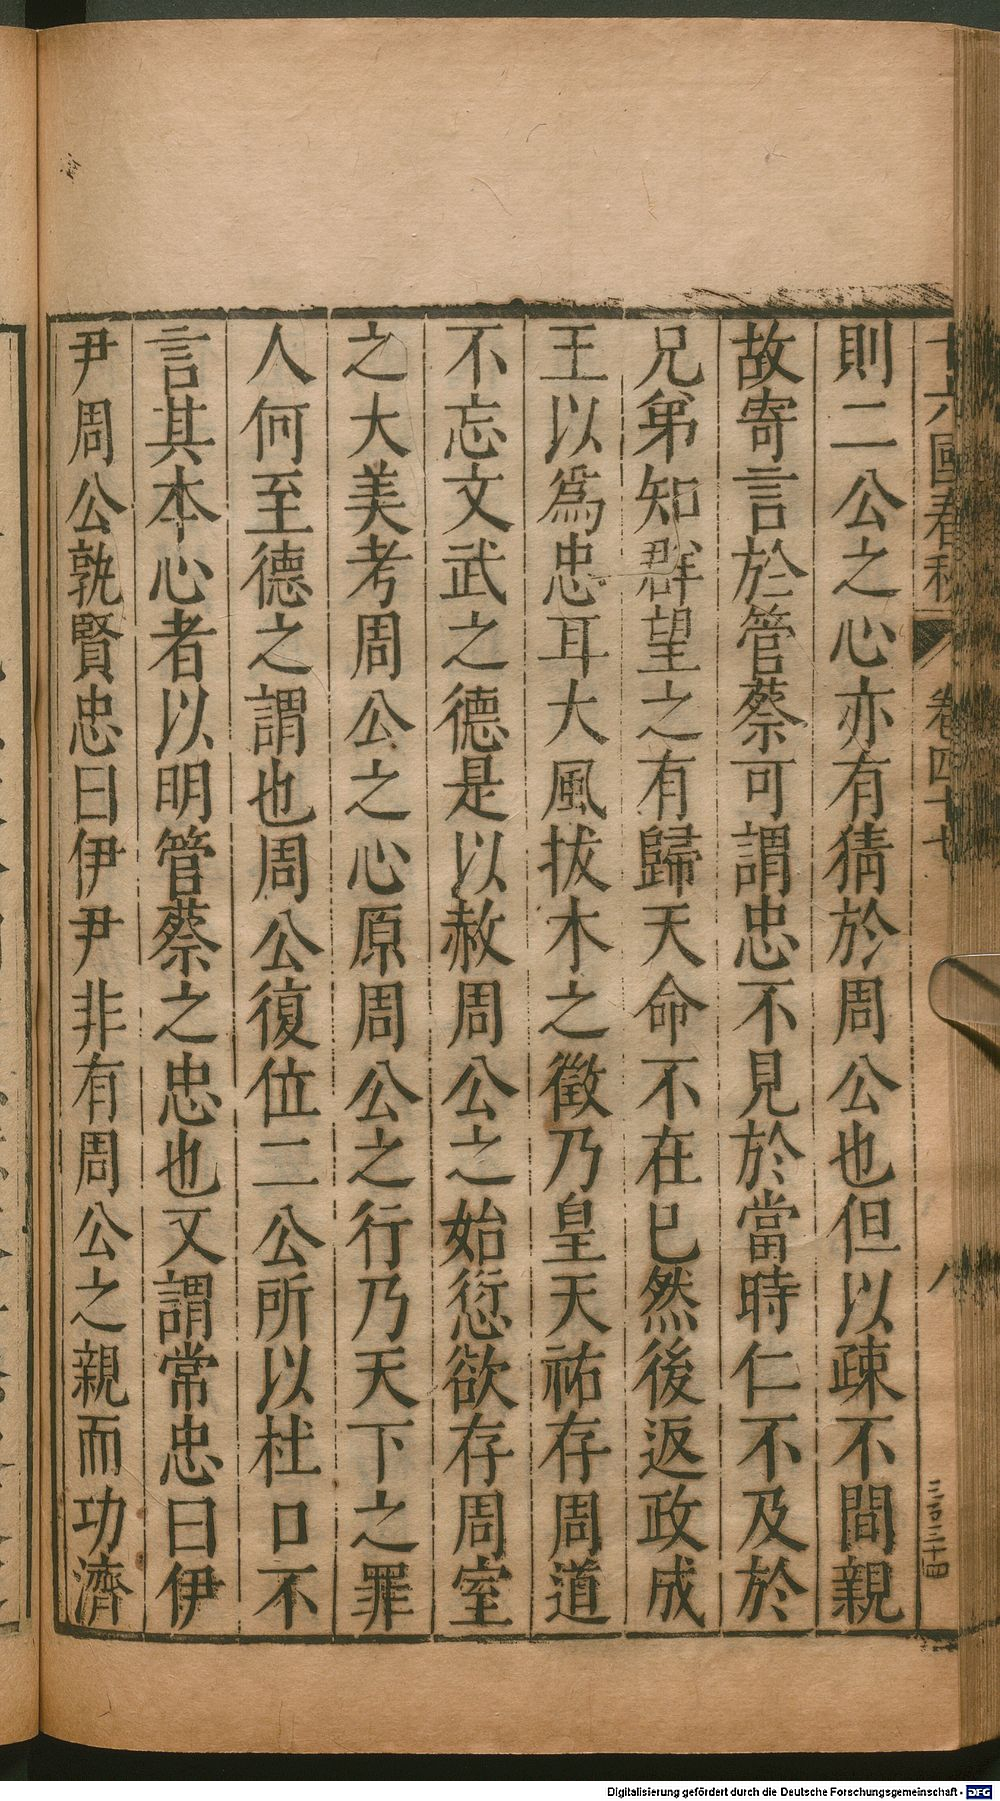 十六國春秋 卷四十七 八
則二公之心亦有猜於周公也但以疎不間親
故寄言於管蔡可謂忠不見於當時仁不及於
兄弟知群望之有歸天命不在已然後返政成
王以爲忠耳大風拔木之徵乃皇天祐存周道
不忘文武之德是以赦周公之始愆欲存周室
之大美考周公之心原周公之行乃天下之罪
人何至德之謂也周公復位二公所以杜口不
言其本心者以明管蔡之忠也又謂常忠曰伊
尹周公孰賢忠曰伊尹非有周公之親而功濟
三百三十四
Digitalisierung gefördert durch die Deutsche Forschungsgemeinschaft - DFG